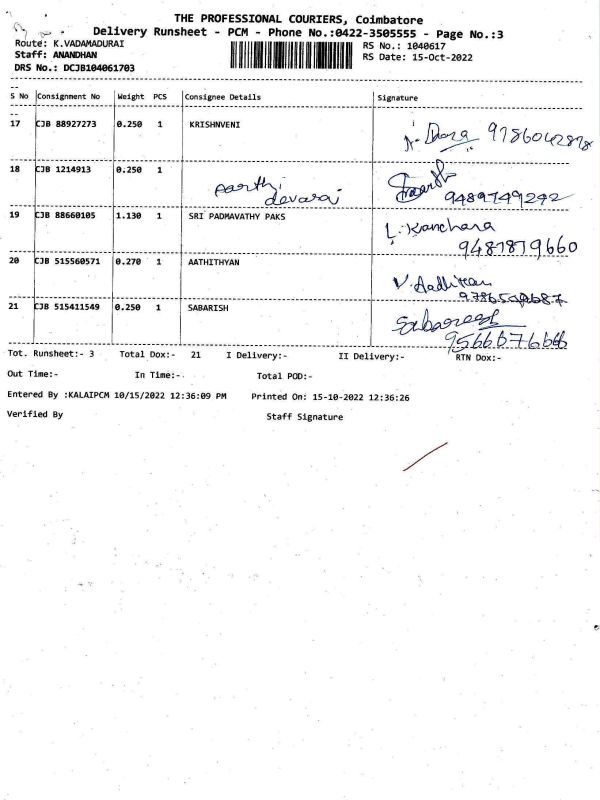 THE PROFESSIONAL COURIERS, Coimbatore
Delivery Runsheet - PCM - Phone No.:0422-3505555 - Page No.:3
Route: K.VADAMADURAI
RS No.: 1040617
Staff: ANANDHAN
RS Date: 15-Oct-2022
DRS No.: DCJB104061703
S No Consignment No Weight PCS Consignee Details Signature
17 CJB 88927273 0.250 1 KRISHNVENI
18 CJB 1214913 0.250 1
aarthi
devaraj
9489749292
19 CJB 88660105 1.130 1 SRI PADMAVATHY PAKS
L. Kanchana
9487879660
20 CJB 515560571 0.270 1 AATHITHYAN
V. Aadhithan
21 CJB 515411549 0.250 1 SABARISH
Sabareesh
Tot. Runsheet:- 3 Total Dox:- 21 I Delivery:- II Delivery:- RTN Dox:-
Out Time:- In Time:- Total POD:-
Entered By :KALAIPCM 10/15/2022 12:36:09 PM Printed On: 15-10-2022 12:36:26
Verified By Staff Signature